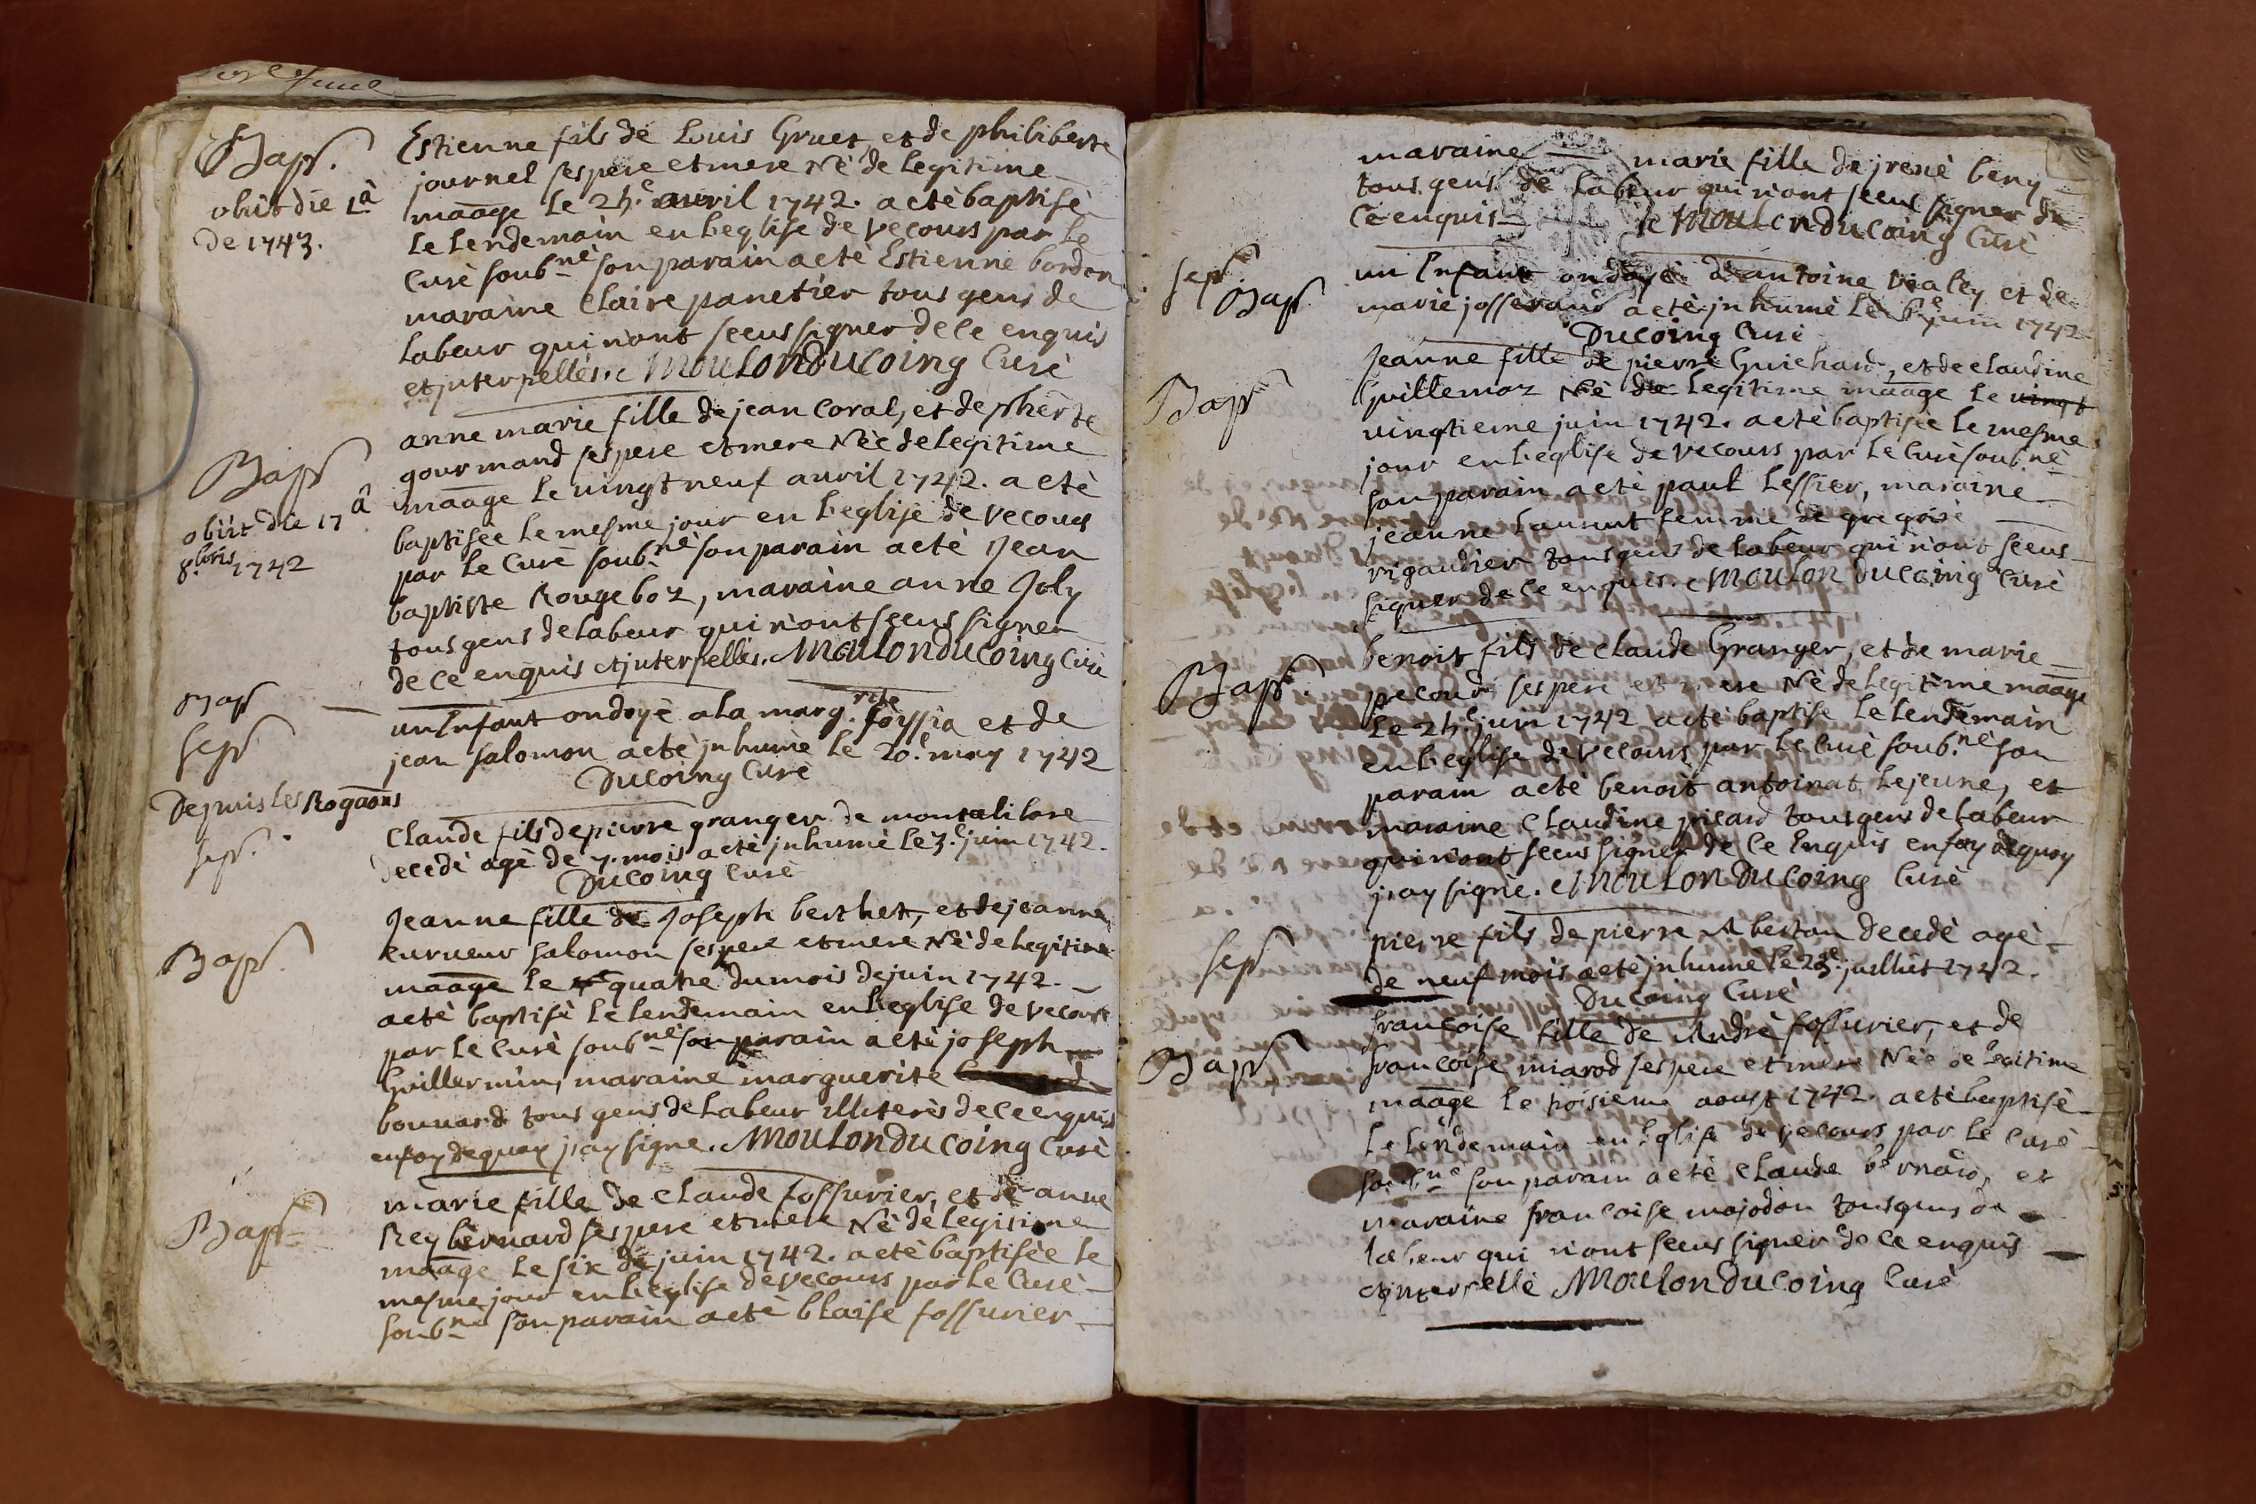 Bap.
obiit die 1.a
de 1743.
Estienne fils de Louis Gruet et de philiberte
journel ses pere et mere Né de legitime
maage le 24.e avril 1742. a eté baptisé
le lendemain en l'eglise de vecours par le
curé soub.né son parain a eté Estienne bordon
maraine Claire panetier tous gens de
labeur qui n'ont sceus signer de ce enquis
et interpellés. Moulon du coing Curé
Bap
obiit die 17 a
8.bris 1742
anne marie fille de jean Coral, et de pherte
gourmand ses pere et mere Née de legitime
maage le vingt neuf avril 1742. a eté
baptisée le mesme jour en l'eglise de vecours
par le Curé soub.né son parain a eté Jean
baptiste Rougeboz, maraine anne Joly
tous gens de labeur qui n'ont sceus signer
de ce enquis et interpellés. Moulon du Coing Curé
Bap
sep
un Enfant ondoyé a la marg.rite et de
jean salomon a eté inhumé le 20.e may 1742
Du Coing Curé
Depuis les Rogaons
sep.
Claude fils de pierre granger de
decedé agé de 7. mois a eté inhumé le 3.e juin 1742.
Du Coing Curé
Bap.
Jeanne fille de Joseph berthet, et de jeanne
salomon ses pere et mere Né de legitime
maage le quatre du mois de juin 1742.
a eté baptisé le lendemain en l'eglise de vecours
par le Curé soub.né son parain a eté joseph
Guillermin, maraine marguerite
bonnard tous gens de labeur illiterés de ce enquis
en foy de quoy j'ay signe. Moulon du Coing Curé
Bap
marie fille de Claude fossurier, et de anne
Rey bernard ses pere et mere Né de legitime
maage le six de juin 1742. a eté baptisée le
mesme jour en l'eglise de vecours par le Curé
soub.né son parain a eté blaise fossurier
maraine marie fille de jrené beny
tous gens de labeur qui n'ont sceus signer de
ce enquis Moulon du Coing Curé
sep
Bap
un Enfant ondoyé d'antoine vialey et de
marie josserand a eté inhumé le juin 1742
Du Coing Curé
Bap
Jeanne fille de pierre Guichard, et de claudine
Guillemoz Né de legitime maage le vingt
vingtieme juin 1742. a eté baptisée le mesme
jour en l'eglise de vecours par le Curé soub.né
son parain a eté paul Lessier, maraine
jeanne laurent femme de gregoire
rigaudier tous gens de labeur qui n'ont sceus
signer de ce enquis. Moulon du Coing Curé
Bap.
benoit fils de claude Granger, et de marie
pecour ses pere et mere Né de legitime maage
le 24.e juin 1742 a eté baptisé le lendemain
en l'eglise de vecours par le Curé soub.né son
parain a eté benoit antoinat le jeune, et
maraine Claudine picard tous gens de labeur
qui n'ont sceus signer de ce enquis en foy de quoy
j'ay signé. Moulon du Coing Curé
sep
pierre fils de pierre decedé agé
de neuf mois a eté inhumé le 23.e juillet 1742.
Du Coing Curé
Bap
francoise fille de André fossurier, et de
francoise miarod ses pere et mere Née de legitime
maage le troisieme aoust 1742. a eté baptisé
le lendemain en l'eglise de vecours par le Curé
soub.né son parain a eté Claude bernard, et
maraine francoise majodon tous gens de
labeur qui n'ont sceus signer de ce enquis
et interpellé Moulon du Coing Curé